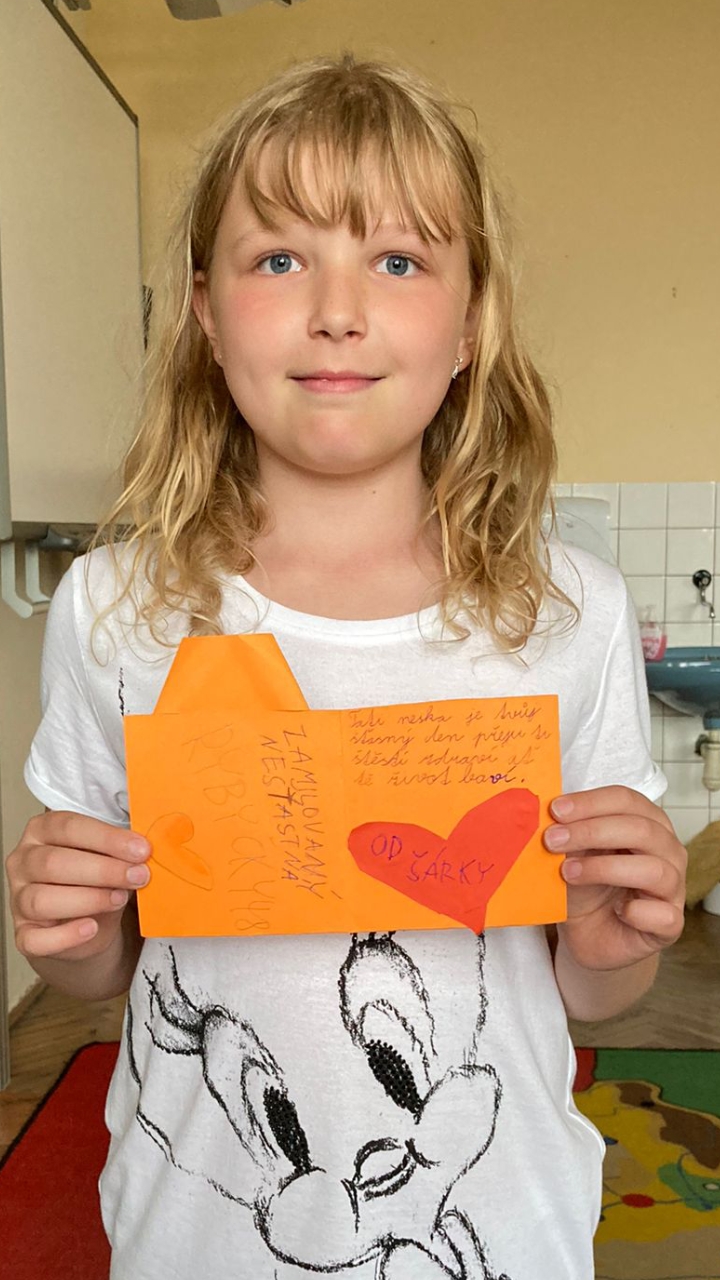 RYBYCKY48
ZAMILOVANÝ
NEŠŤASTNÁ
Tati neska je tvůj
štasný den přeju ti
štěstí zdraví ať
tě život baví.
OD
ŠÁRKY